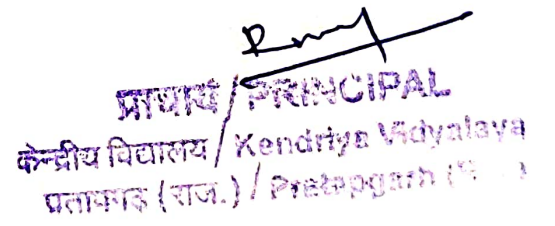 प्राचार्य / PRINCIPAL
केन्द्रीय विद्यालय / Kendriya Vidyalaya
प्रतापगढ़ (राज.) / Pratapgarh (